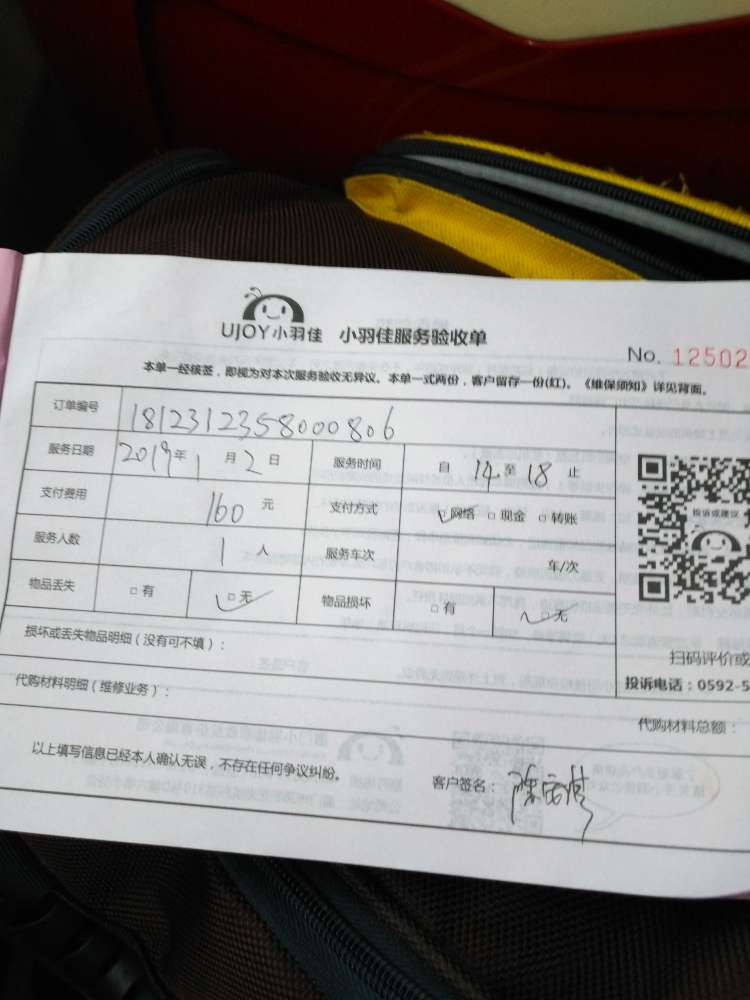 UJOY小羽佳 小羽佳服务验收单
No. 12502
本单一经核签，即视为对本次服务验收无异议。本单一式两份，客户留存一份(红)。《维保须知》详见背面。
订单编号 1812312358000806
服务日期 2019年1月2日 服务时间 自14至18止
支付费用 160元 支付方式 网络 □现金 □转账
服务人数 1人 服务车次 车/次
物品丢失 □有 □无 物品损坏 □有 □无
损坏或丢失物品明细（没有可不填）：
代购材料明细（维修业务）：
代购材料总额：
以上填写信息已经本人确认无误，不存在任何争议纠纷。
客户签名：
投诉或建议
扫码评价或
投诉电话：0592-5